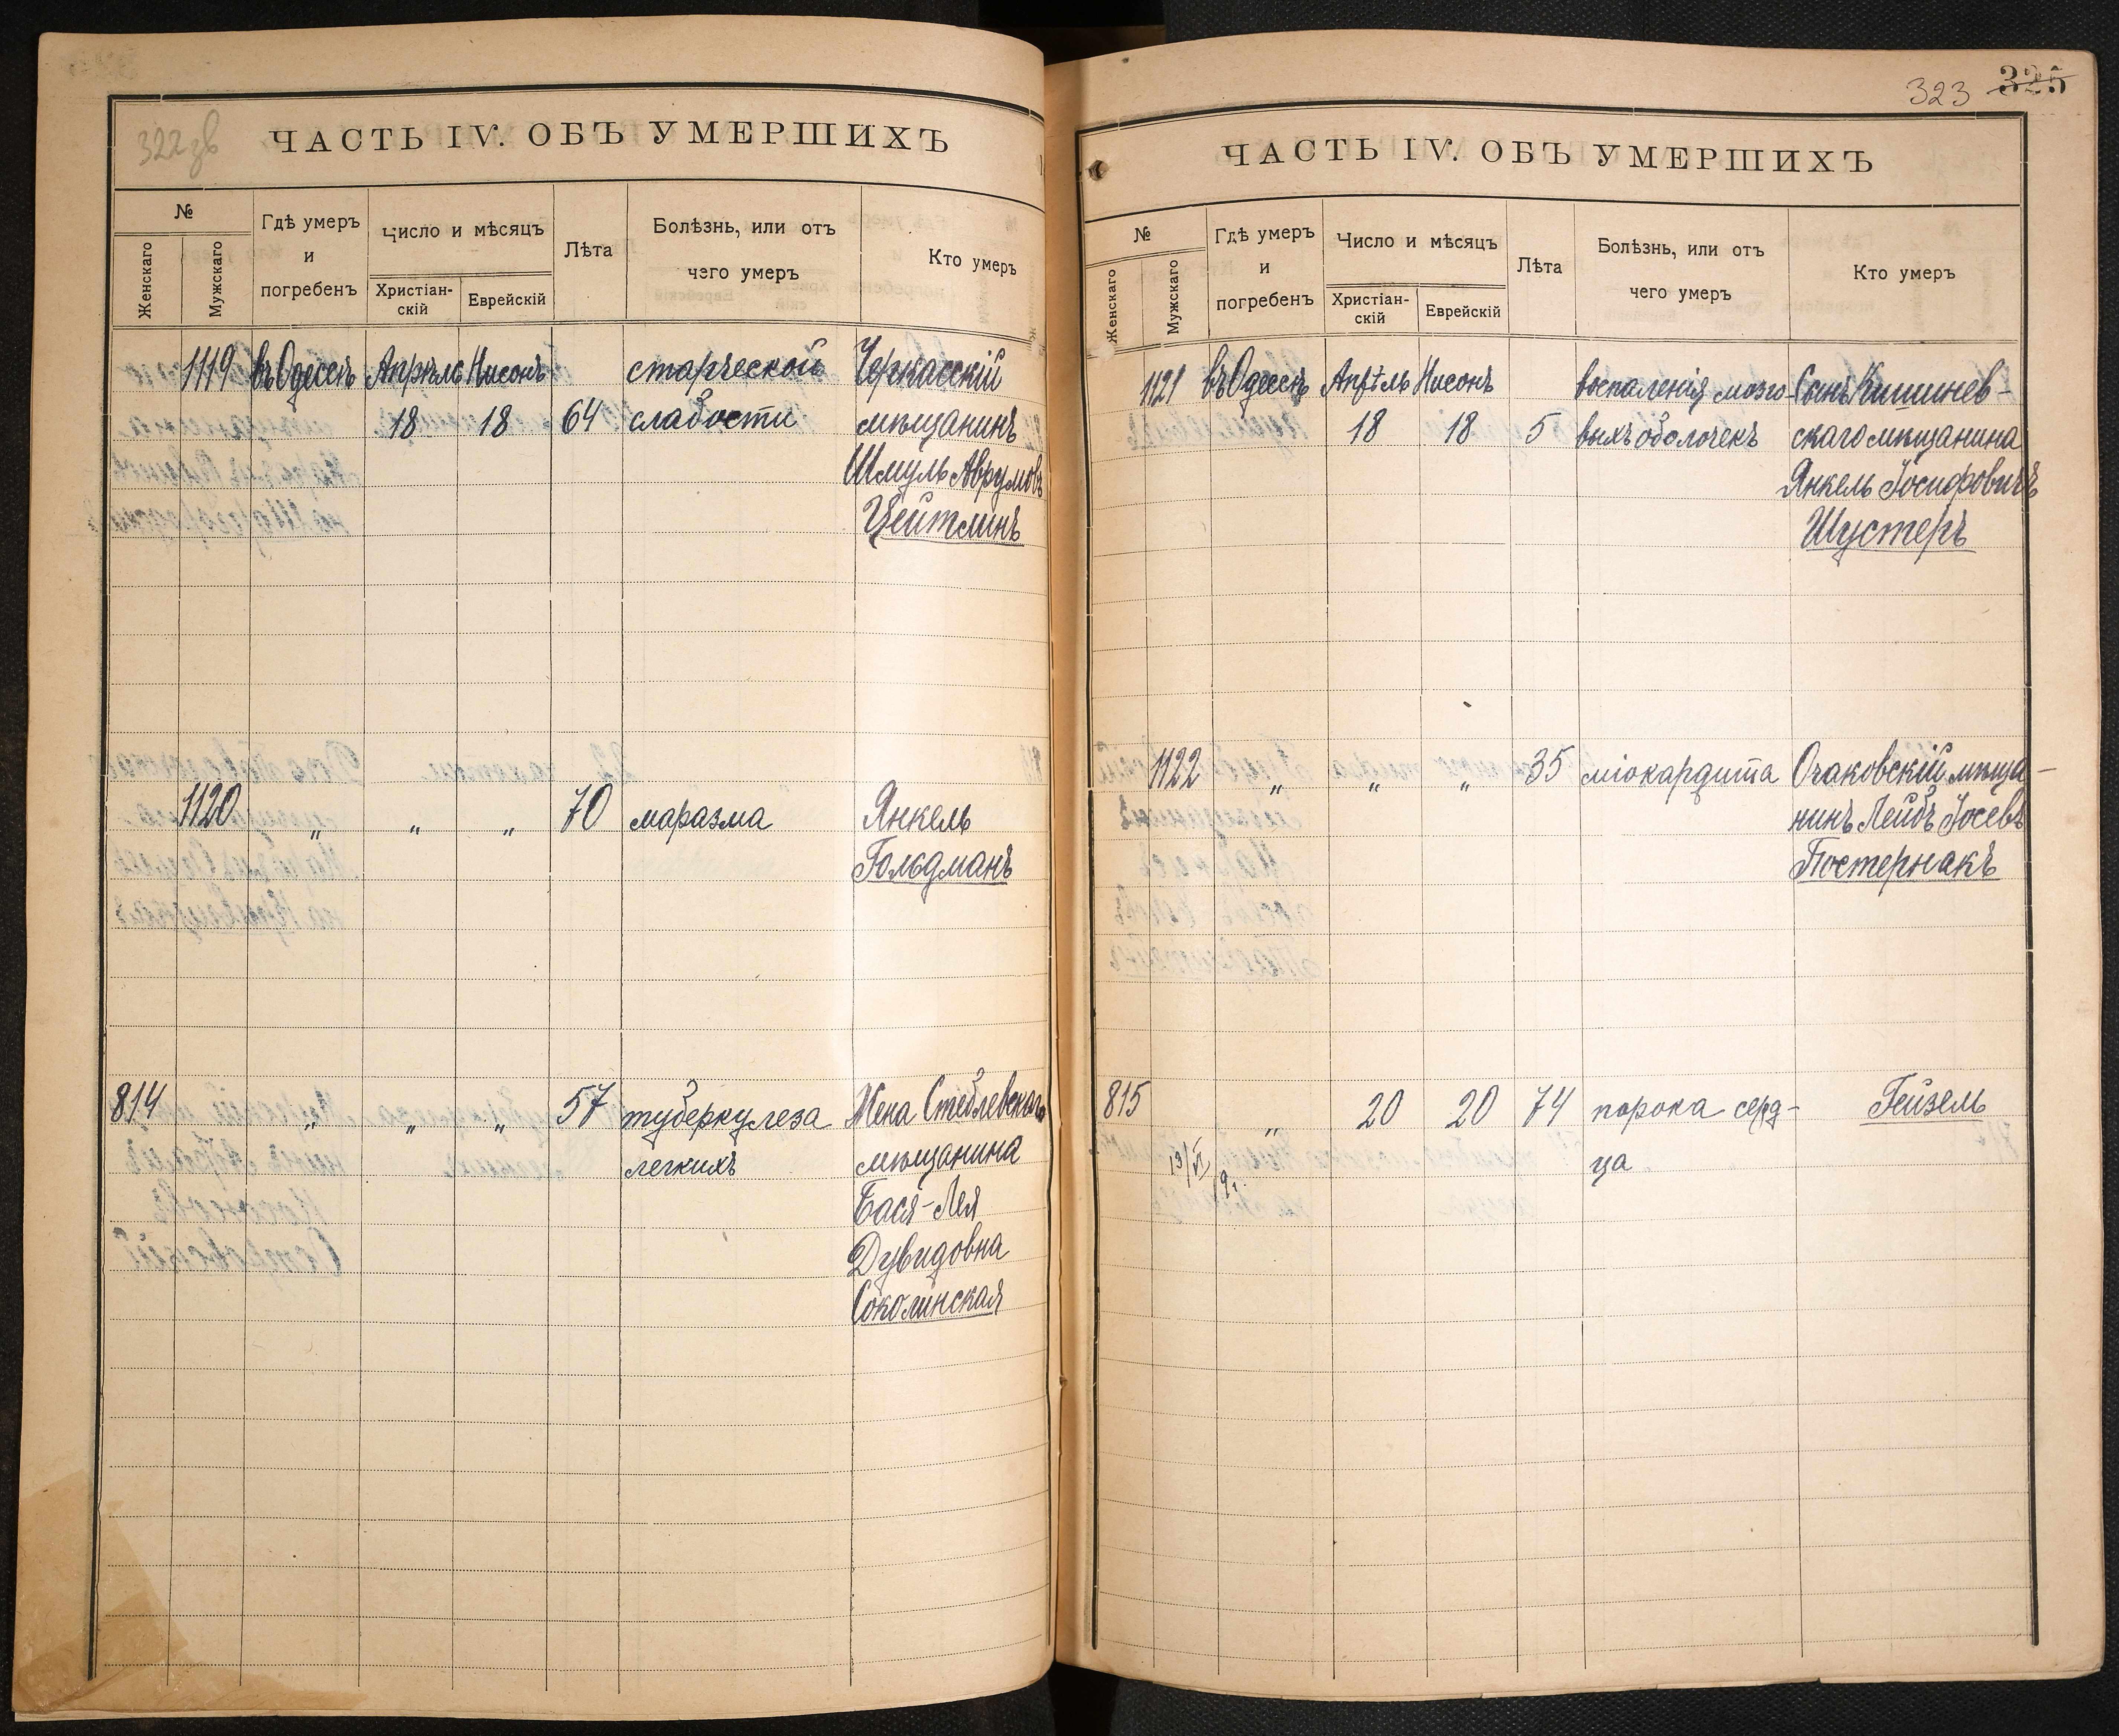 322 зв
ЧАСТЬ IV. ОБЪ УМЕРШИХЪ
№
Женскаго
Мужскаго
Гдѣ умеръ
и
погребенъ
Число и мѣсяцъ
Христіан-
скій
Еврейскій
Лѣта
Болѣзнь, или отъ
чего умеръ
Кто умеръ
1119 въ Одессѣ Апрѣль Нисонъ старческой Черкасскій
18 18 64 слабости мѣщанинъ
Шмуль Аврумовъ
Цейтлинъ
1120 „ „ „ 70 маразма Янкель
Гольдманъ
814 „ „ „ 57 туберкулеза Жена Стеблевскаго
легкихъ мѣщанина
Бася-Лея
Дувидовна
Соколинская
323 325
ЧАСТЬ IV. ОБЪ УМЕРШИХЪ
№
Женскаго
Мужскаго
Гдѣ умеръ
и
погребенъ
Число и мѣсяцъ
Христіан-
скій
Еврейскій
Лѣта
Болѣзнь, или отъ
чего умеръ
Кто умеръ
1121 въ Одессѣ Апрѣль Нисонъ воспаленія мозго- Сынъ Кишинев-
18 18 5 выхъ оболочекъ скаго мѣщанина
Янкель Іосифовичъ
Шустеръ
1122 „ „ „ 35 міокардита Очаковскій мѣща-
нинъ Лейбъ Іосевъ
Постернакъ
815 „ 20 20 74 порока серд- Гейзель
ца